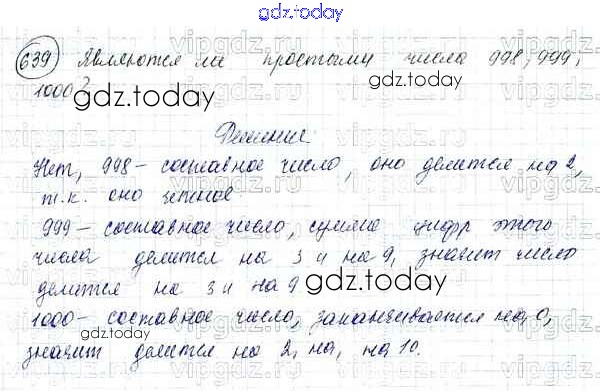 gdz.today
639 Являются ли простыми числа 998, 999,
1000?
gdz.today
Решение:
Нет, 998 – составное число, оно делится на 2,
т.к. оно четное.
999 – составное число, сумма цифр этого
числа делится на 3 и на 9, значит число
делится на 3 и на 9
gdz.today
1000 – составное число, заканчивается на 0,
значит делится на 2, на, на 10.
gdz.today